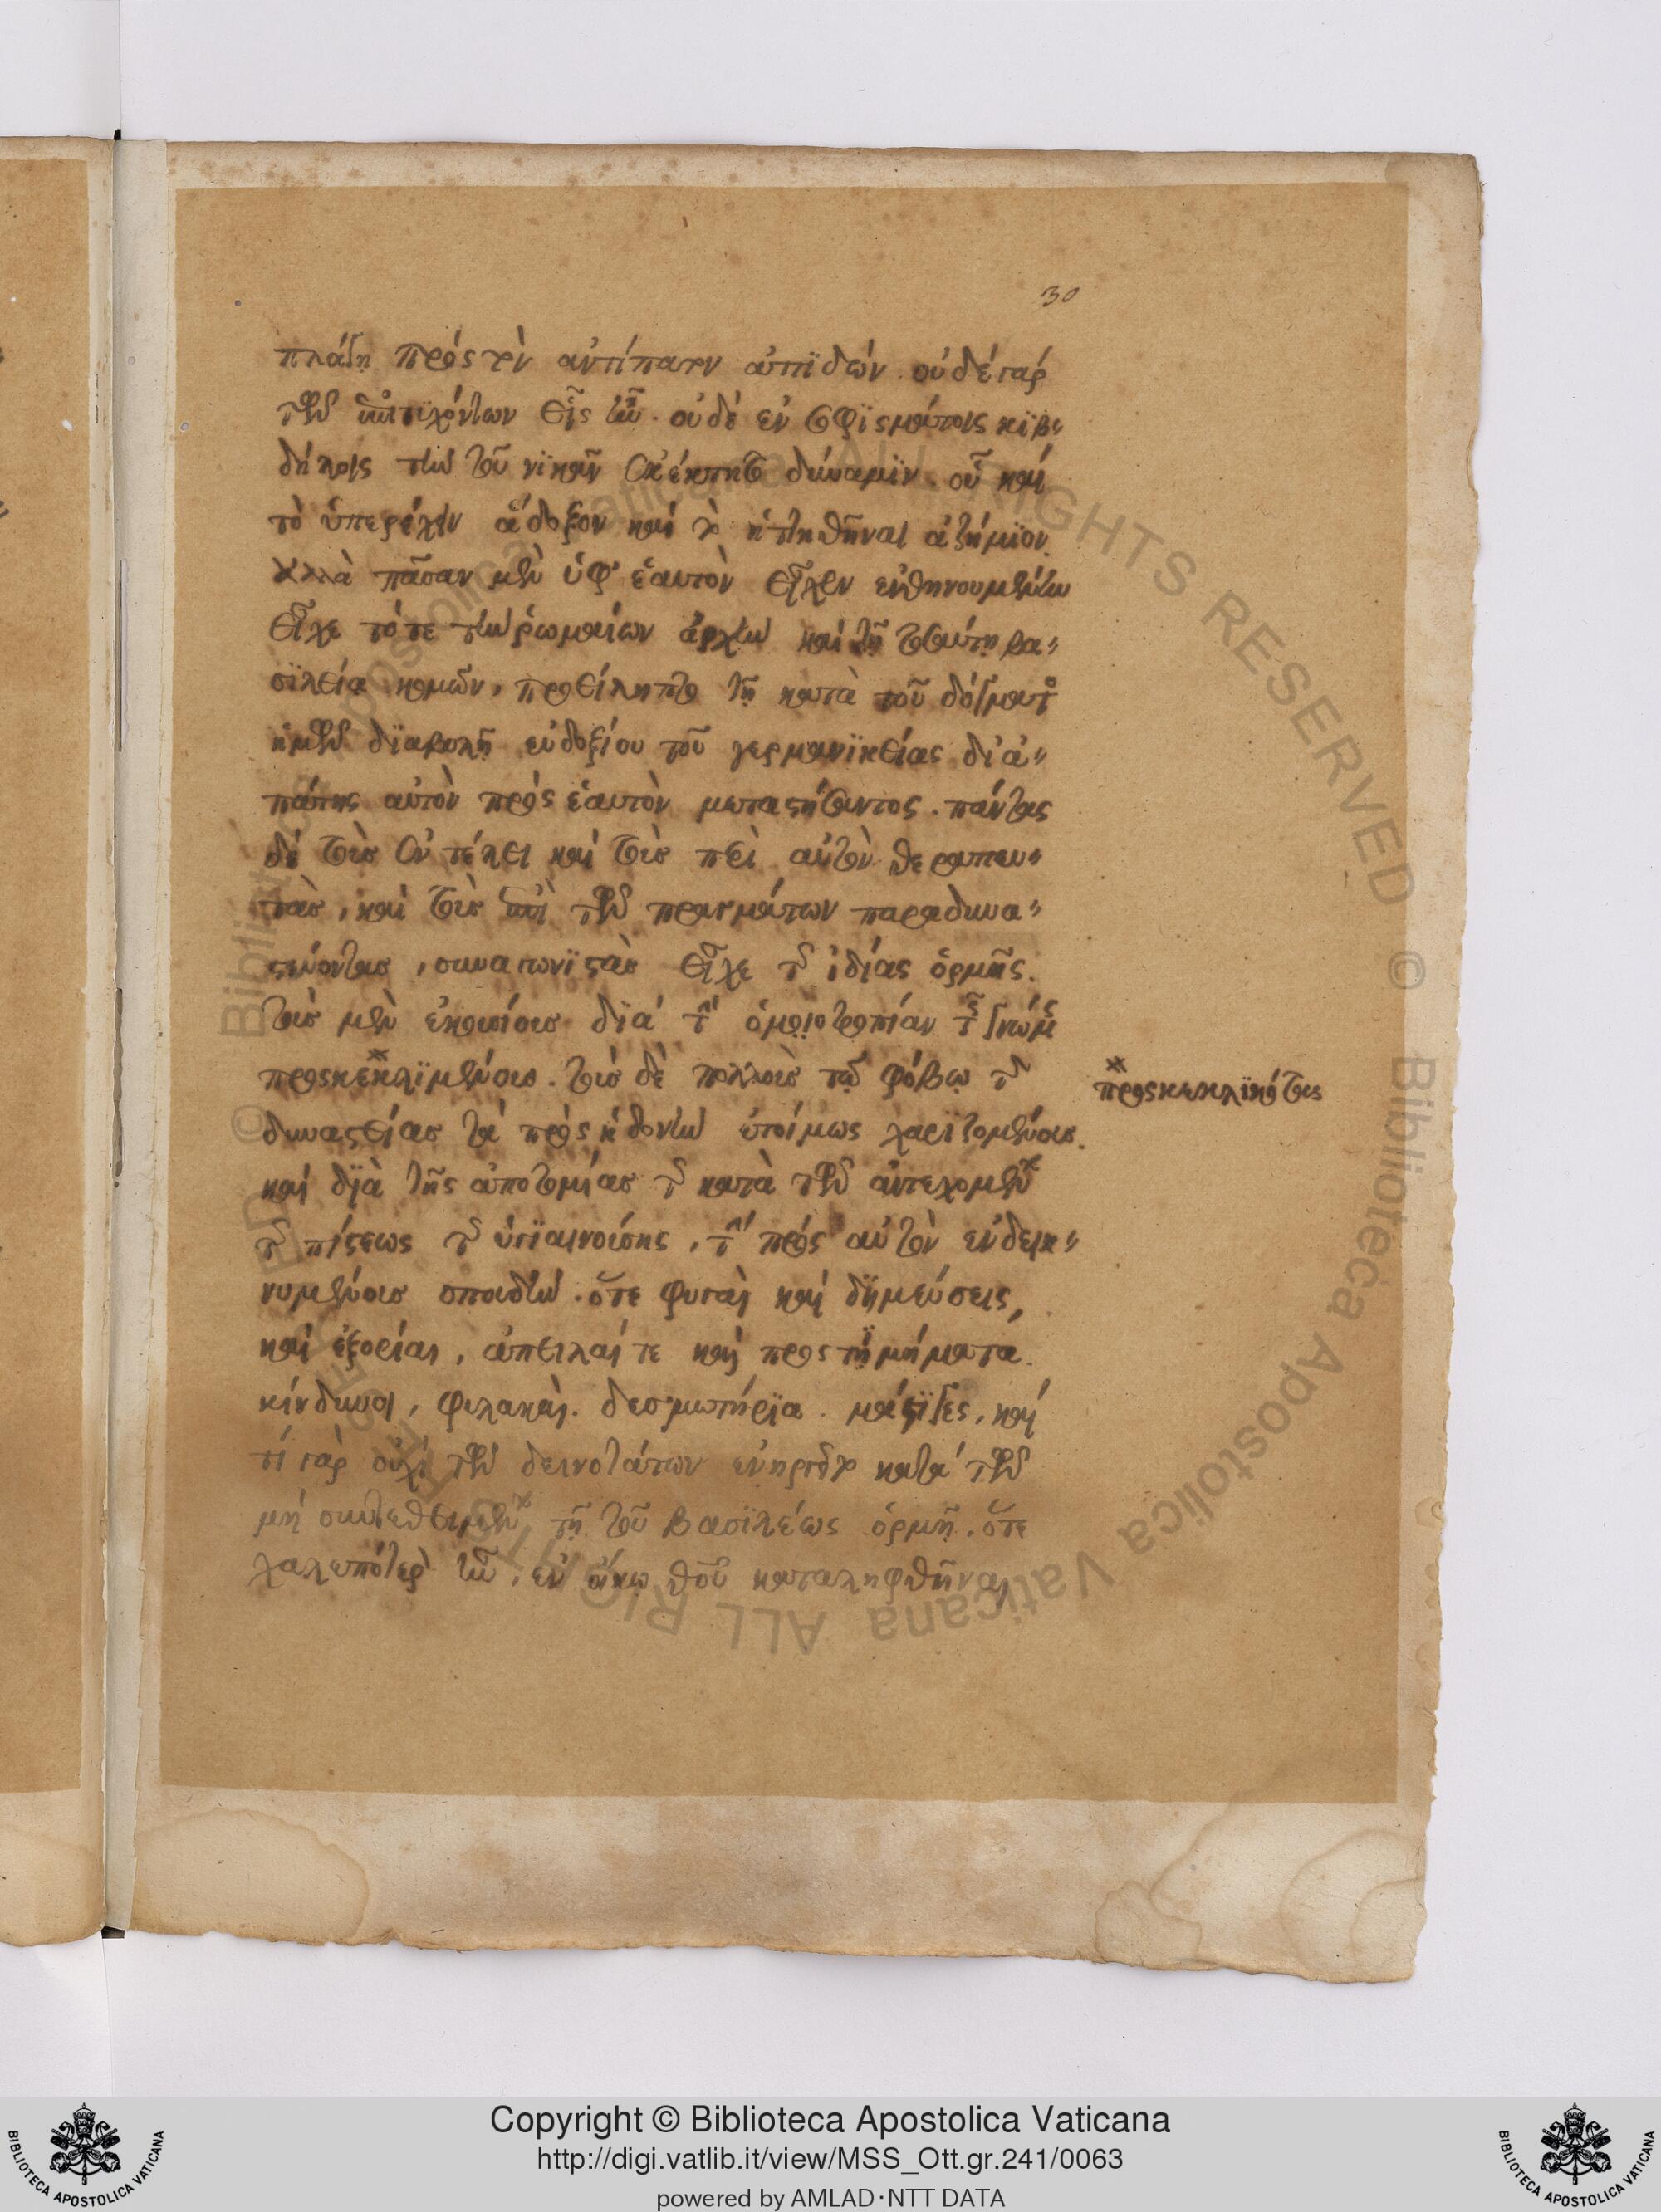 30
πλάζῃ πρὸς τὸν ἀντίπαλον ἀπιδών. οὐδὲ γὰρ
τῶν ἐπιτυχόντων εἷς ἦν. οὐδὲ ἐν σοφίσμασι κιβ
δήλοις τὴν τοῦ νικᾶν ἐκέκτητο δύναμιν. οὗ καὶ
τὸ ὑπερέχειν ἄδοξον καὶ τὸ ἡττηθῆναι ἀζήμιον.
ἀλλὰ πᾶσαν μὲν ὑφ' ἑαυτὸν εἶχεν εὐθηνουμένην
εἶχε τότε τὴν ῥωμαίων ἀρχὴν καὶ τῇ τοσαύτῃ βα
σιλείᾳ κομῶν, προείληπτο τῇ κατὰ τοῦ δόγματος
ἡμῶν διαβολῇ εὐδοξίου τοῦ γερμανικείας δι' ἀ
πάτης αὐτὸν πρὸς ἑαυτὸν μεταστήσαντος. πάντας
δὲ τοὺς ἐν τέλει καὶ τοὺς περὶ αὐτὸν θεραπευ
τὰς, καὶ τοὺς ἐπὶ τῶν πραγμάτων παραδυνα
στεύοντας, συναγωνιστὰς εἶχε τῆς ἰδίας ὁρμῆς.
τοὺς μὲν ἑκουσίους διὰ τὴν ὁμοιοτροπίαν τῆς γνώμης
προσκεκλιμένους. τοὺς δὲ πολλοὺς τῷ φόβῳ τῆς
προσκεκλικότας
δυναστείας τὰ πρὸς ἡδονὴν ἑτοίμως χαριζομένους.
καὶ διὰ τῆς ἀποτομίας τῆς κατὰ τῶν ἀντεχομένων
τῆς πίστεως τῆς ὑγιαινούσης, τὴν πρὸς αὐτὸν ἐνδεικ
νυμένους σπουδήν. ὅτε φυγαὶ καὶ δημεύσεις,
καὶ ἐξορίαι, ἀπειλαί τε καὶ προστιμήματα.
κίνδυνοι, φυλακαὶ. δεσμωτήρια. μάστιγες, καὶ
τί γὰρ οὐχὶ τῶν δεινοτάτων ἐνηργεῖτο κατὰ τῶν
μὴ συντεθειμένων τῇ τοῦ βασιλέως ὁρμῇ. ὅτε
χαλεπότερον ἦν, ἐν οἴκῳ θεοῦ καταληφθῆναι
Copyright © Biblioteca Apostolica Vaticana
http://digi.vatlib.it/view/MSS_Ott.gr.241/0063
powered by AMLAD·NTT DATA